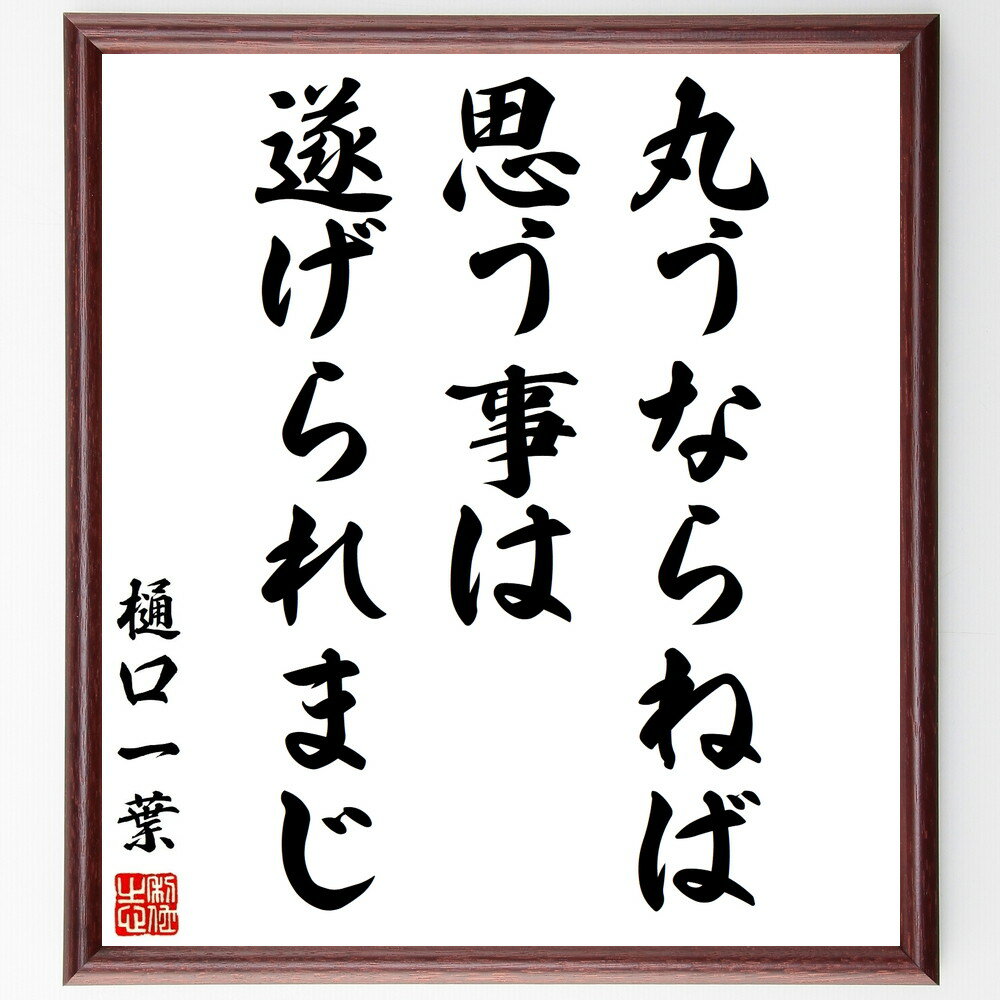 丸うならねば
思う事は
遂げられまじ
樋口一葉